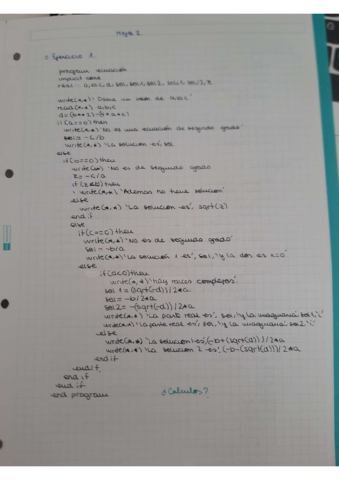 Hoja 2
Ejercicio 1.
program ecuacion
implicit none
real :: a, b, c, d, sol, sol1, sol2,
write(*,*) 'Dame un valor de a,b,c'
read(*,*) a,b,c
d=(b**2)-4*a*c
if(a==0)then
write(*,*) 'No es una ecuación de segundo grado'
sol=-c/b
write(*,*) 'La solucion es', sol
else
if(b==0)then
write(*,*) 'No es de segundo grado
z=-c/a
if(z<0)then
write(*,*) 'Ademas no tiene solucion'
else
write(*,*) 'La solucion es', sqrt(z)
end if
else
if(c==0)then
write(*,*) 'No es de segundo grado'
sol=-b/a
write(*,*) 'La solución 1 es', sol, 'y la dos es x=0'
else
if(d<0)then
write(*,*) 'hay raices complejas'
sol1=(sqrt(-d))/2*a
sol=-b/2*a
sol2=-(sqrt(-d))/2*a
write(*,*) 'La parte real es', sol, 'y la imaginaria' sol1,'i'
write(*,*) 'La parte real es', sol, 'y la imaginaria' sol2,'i'
else
write(*,*) 'La solucion 1 es', (-b+(sqrt(d)))/2*a
write(*,*) 'La solucion 2 es', (-b-(sqrt(d)))/2*a
end if
end if
end if
end if
end program
¿Calculos?